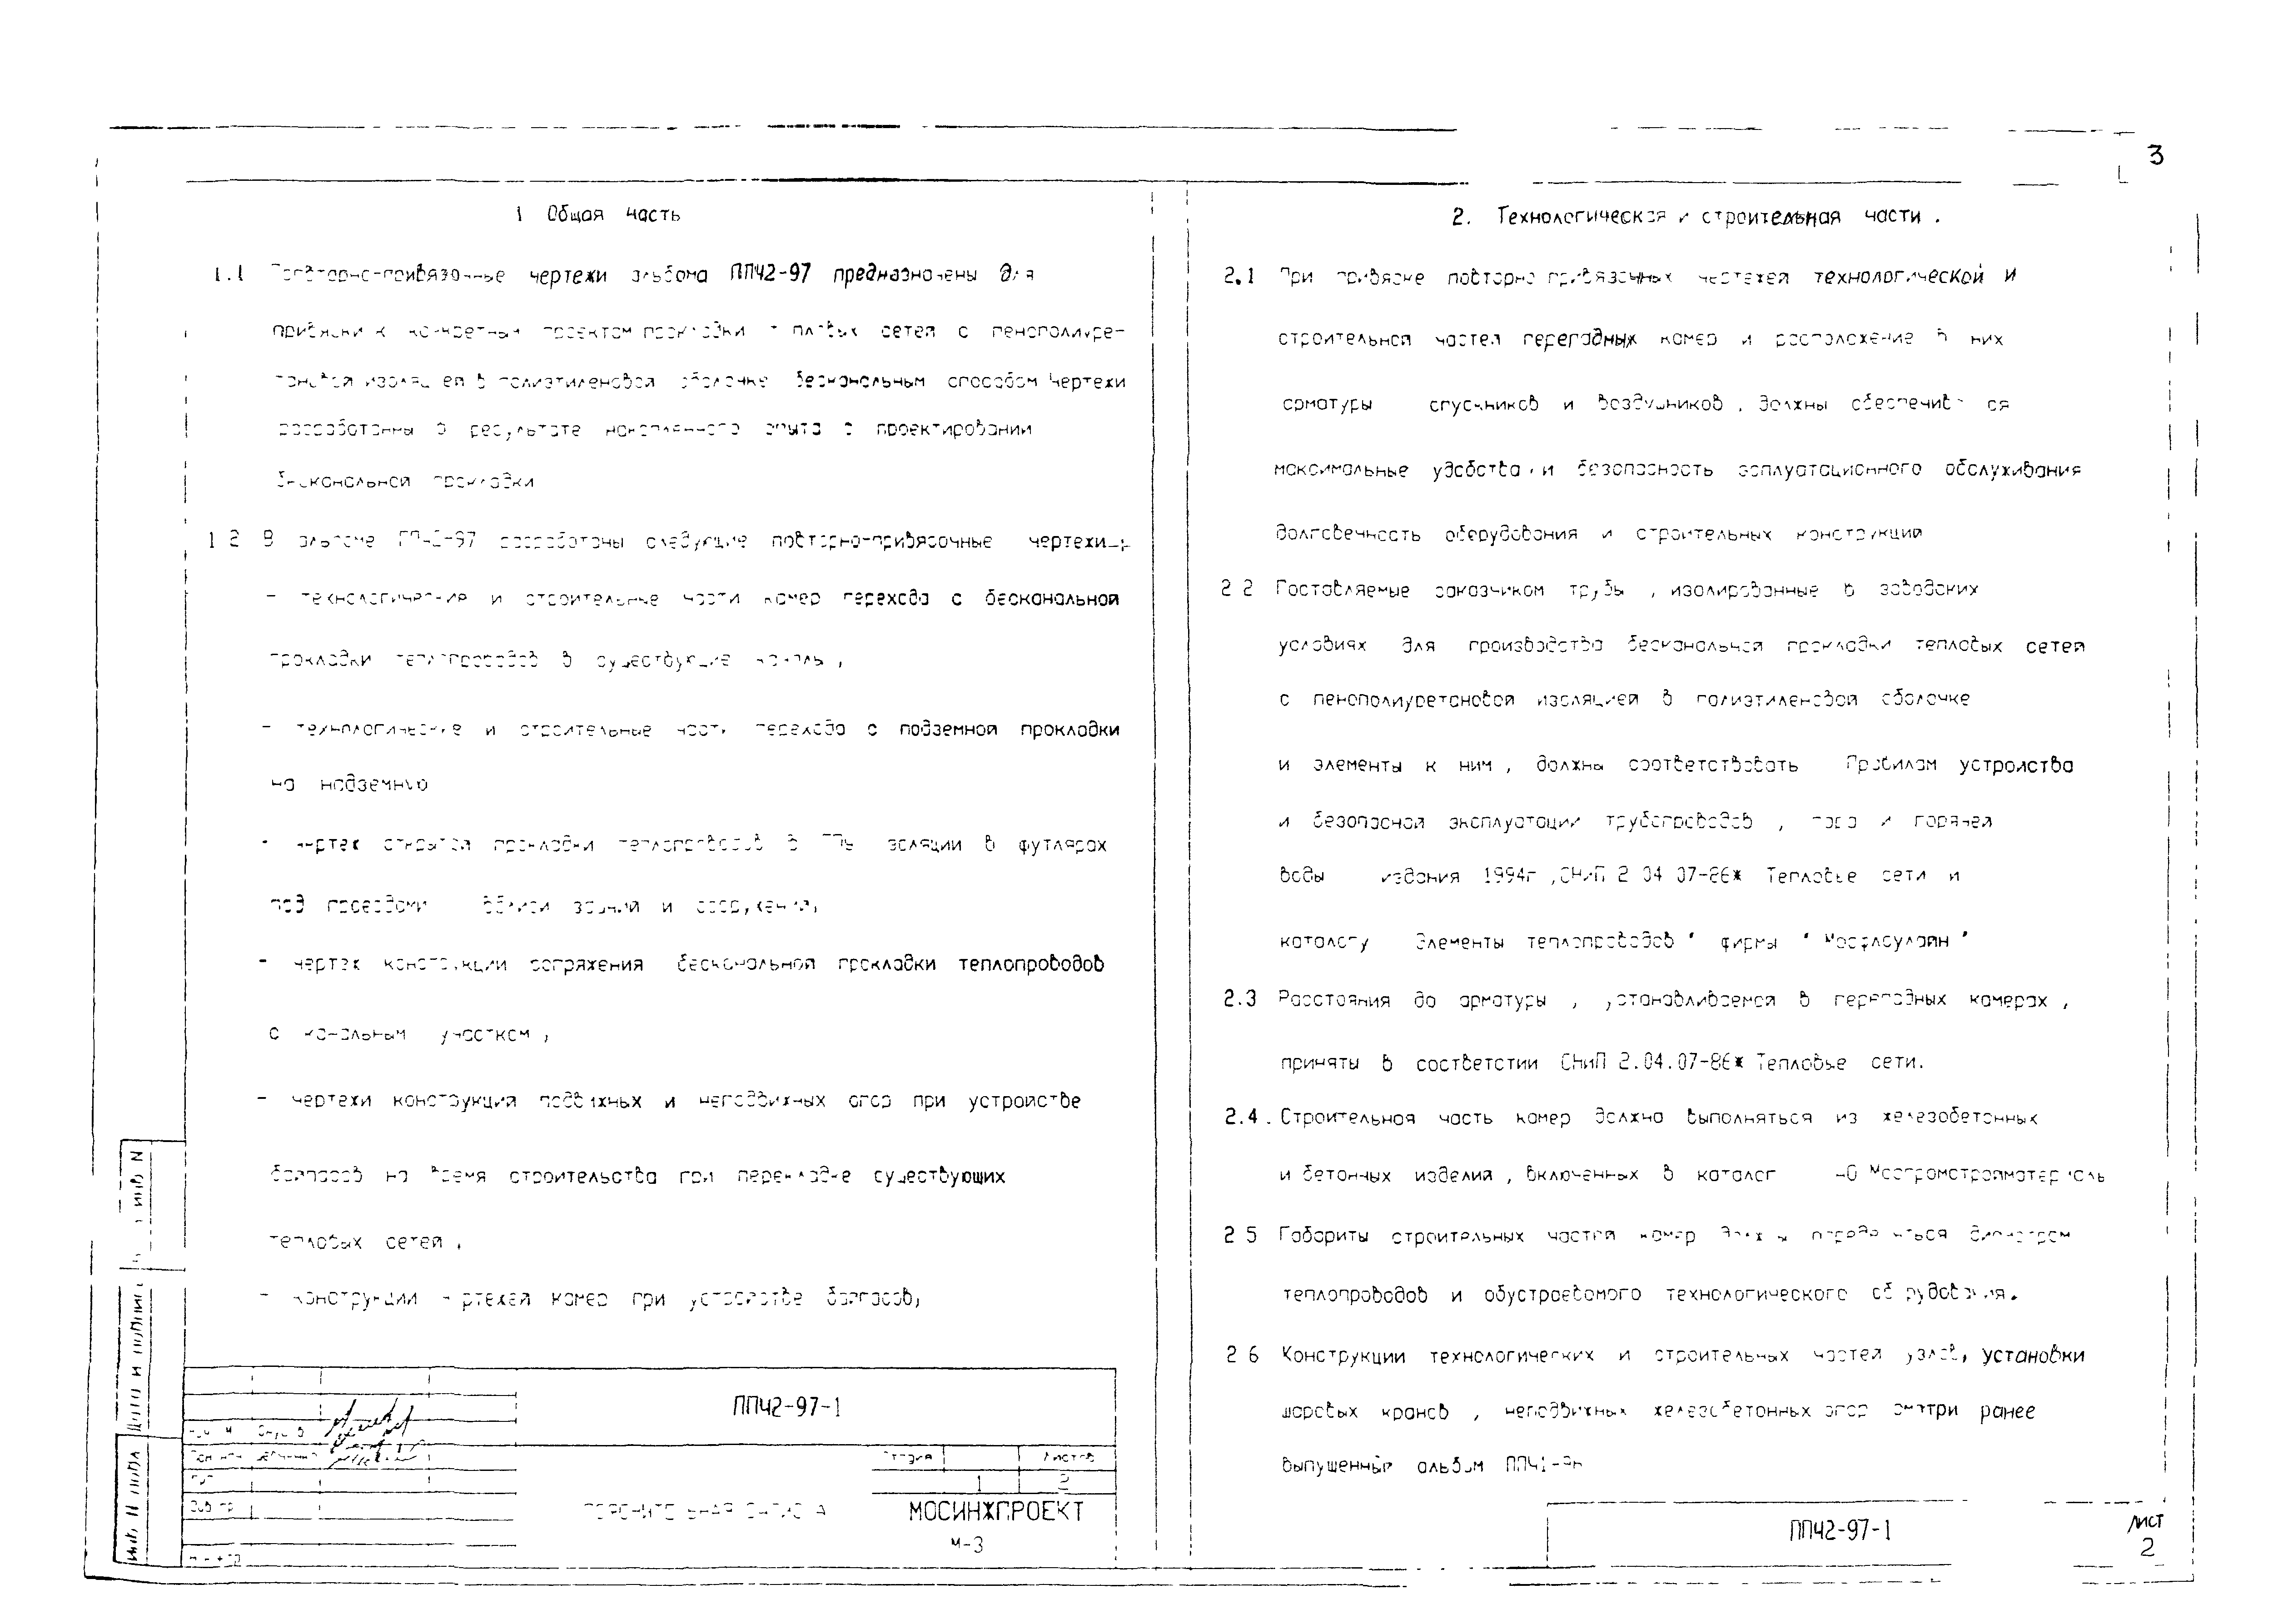 3
1 Общая часть
1.1 Повторно-привязочные чертежи альбома ППЧ2-97 предназначены для
привязки к конкретным проектам прокладки тепловых сетей с пенополиуре-
тановой изоляцией в полиэтиленовой оболочке бесканальным способом Чертежи
разработанны в результате накопленного опыта в проектировании
бесканальной прокладки
1 2 В альбоме ППЧ2-97 разработаны следующие повторно-привязочные чертежи
- технологические и строительные части камер перехода с бесканальной
прокладки теплопроводов в существующие каналы ,
- технологические и строительные части перехода с подземной прокладки
на надземную
- чертеж открытой прокладки теплопроводов в ППУ изоляции в футлярах
под проездами вблизи зданий и сооружений,
- чертеж конструкции сопряжения бесканальной прокладки теплопроводов
с канальным участком ,
- чертежи конструкций подвижных и неподвижных опор при устройстве
байпасов на время строительства при перекладке существующих
тепловых сетей ,
- конструкции чертежей камер при устройстве байпасов,
ППЧ2-97-1
Стадия Листов
1 2
Пояснительная записка
МОСИНЖПРОЕКТ
М-3
2. Технологическая и строительная части .
2.1 При привязке повторно привязочных чертежей технологической и
строительной частей перепадных камер и расположение в них
арматуры спускников и воздушников , должны обеспечиваться
максимальные удобства и безопасность эсплуатационного обслуживания
долговечность оборудования и строительных конструкций
2 2 Поставляемые заказчиком трубы , изолированные в заводских
условиях для производства бесканальной прокладки тепловых сетей
с пенополиуретановой изоляцией в полиэтиленовой оболочке
и элементы к ним , должны соответствовать Правилам устройства
и безопасной эксплуатации трубопроводов , пара и горячей
воды издания 1994г ,СНиП 2 04 07-86* Тепловые сети и
каталогу Элементы теплопроводов " фирмы " Мосфлоулайн "
2.3 Расстояния до арматуры , устанавливаемой в перепадных камерах ,
приняты в составетстии СНиП 2.04.07-86* Тепловые сети.
2.4. Строительная часть камер должна выполняться из железобетонных
и бетонных изделий , включенных в каталог АО Моспромстройматериаль
2 5 Габариты строительных частей камер должны определяться диаметром
теплопроводов и обустроевамого технологического оборудования.
2 6 Конструкции технологических и строительных частей узлов, установки
шаровых кранов , неподвижных железобетонных опор смотри ранее
выпущенный альбом ППЧ1-96
ППЧ2-97-1
лист
2